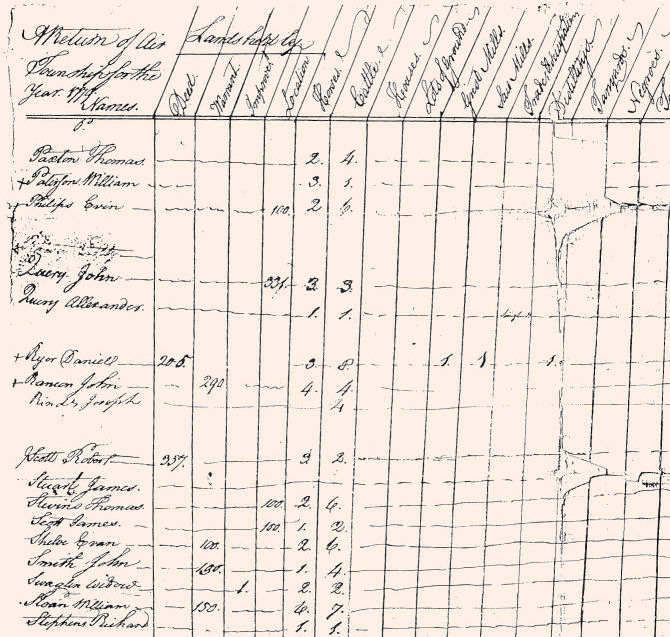 A Return of Air Lands held by
Township for the
Year. Names. Deed. Warrant. Improvmt Location Horses. Cattle. Houses. Lots of ground Grist Mills. Saw Mills. Distillerys Tanyards. Negroes.
P.
Paxton Thomas. 2. 4.
+ Paterson William 3. 1.
+ Philips Evin 100. 2 6.
Q
Query John 331. 3 3.
Query Allexander. 1. 1.
+ Ryer Daniell 205. 3. 8. 1. 1 1.
+ John 290 4. 4.
Joseph 4
Scott Robert 357. 3 2.
Stuart James.
Stevins Thomas. 100. 2. 6.
Scott James. 100. 1. 2.
Shelve Evan 100. 2. 6.
Smith John 130. 1. 4.
Swagler Widow 1. 2. 2.
Sloan William 150. 6. 7.
Stephens Richard 1. 1.